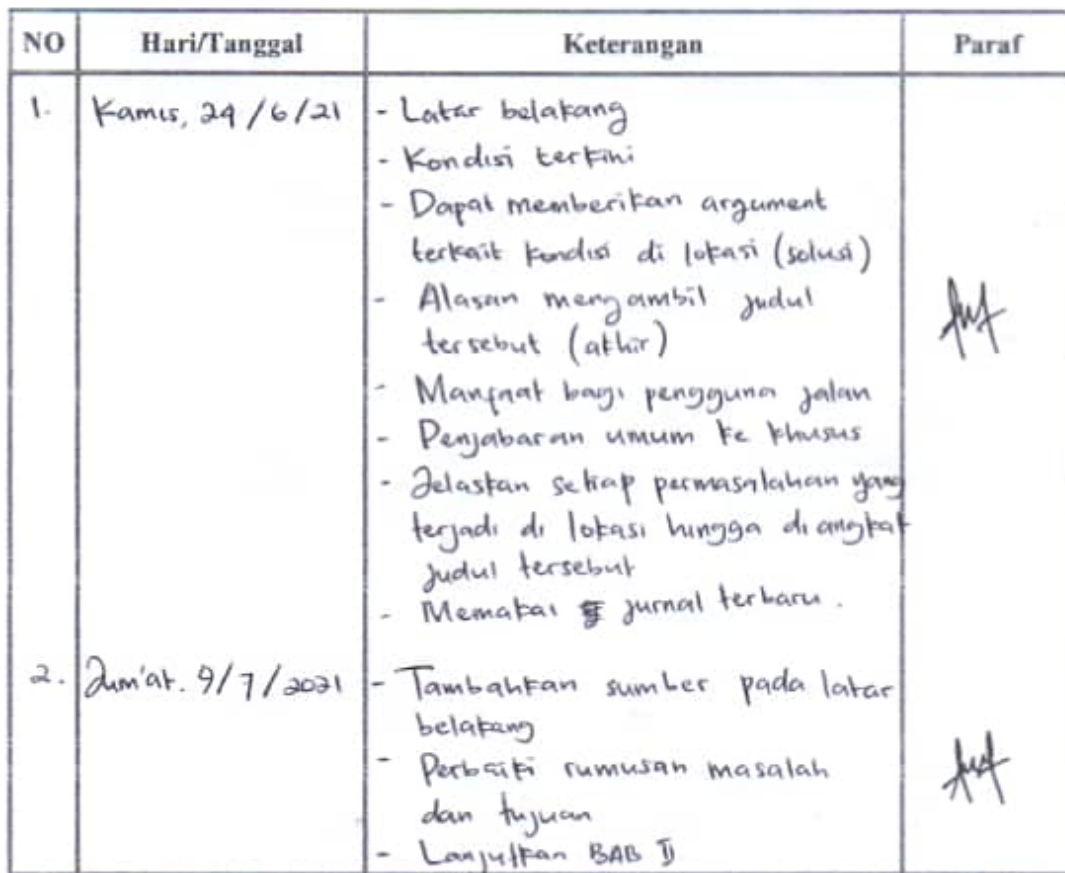 NO Hari/Tanggal Keterangan Paraf
1. Kamis, 24/6/21 - Latar belakang
- Kondisi terkini
- Dapat memberikan argument
terkait kondisi di lokasi (solusi)
- Alasan mengambil judul
tersebut (akhir)
- Manfaat bagi pengguna jalan
- Penjabaran umum ke khusus
- Jelaskan setiap permasalahan yang
terjadi di lokasi hingga di angkat
judul tersebut
- Memakai jurnal terbaru.
2. Jum'at. 9/7/2021 - Tambahkan sumber pada latar
belakang
- Perbaiki rumusan masalah
dan tujuan
- Lanjutkan BAB II